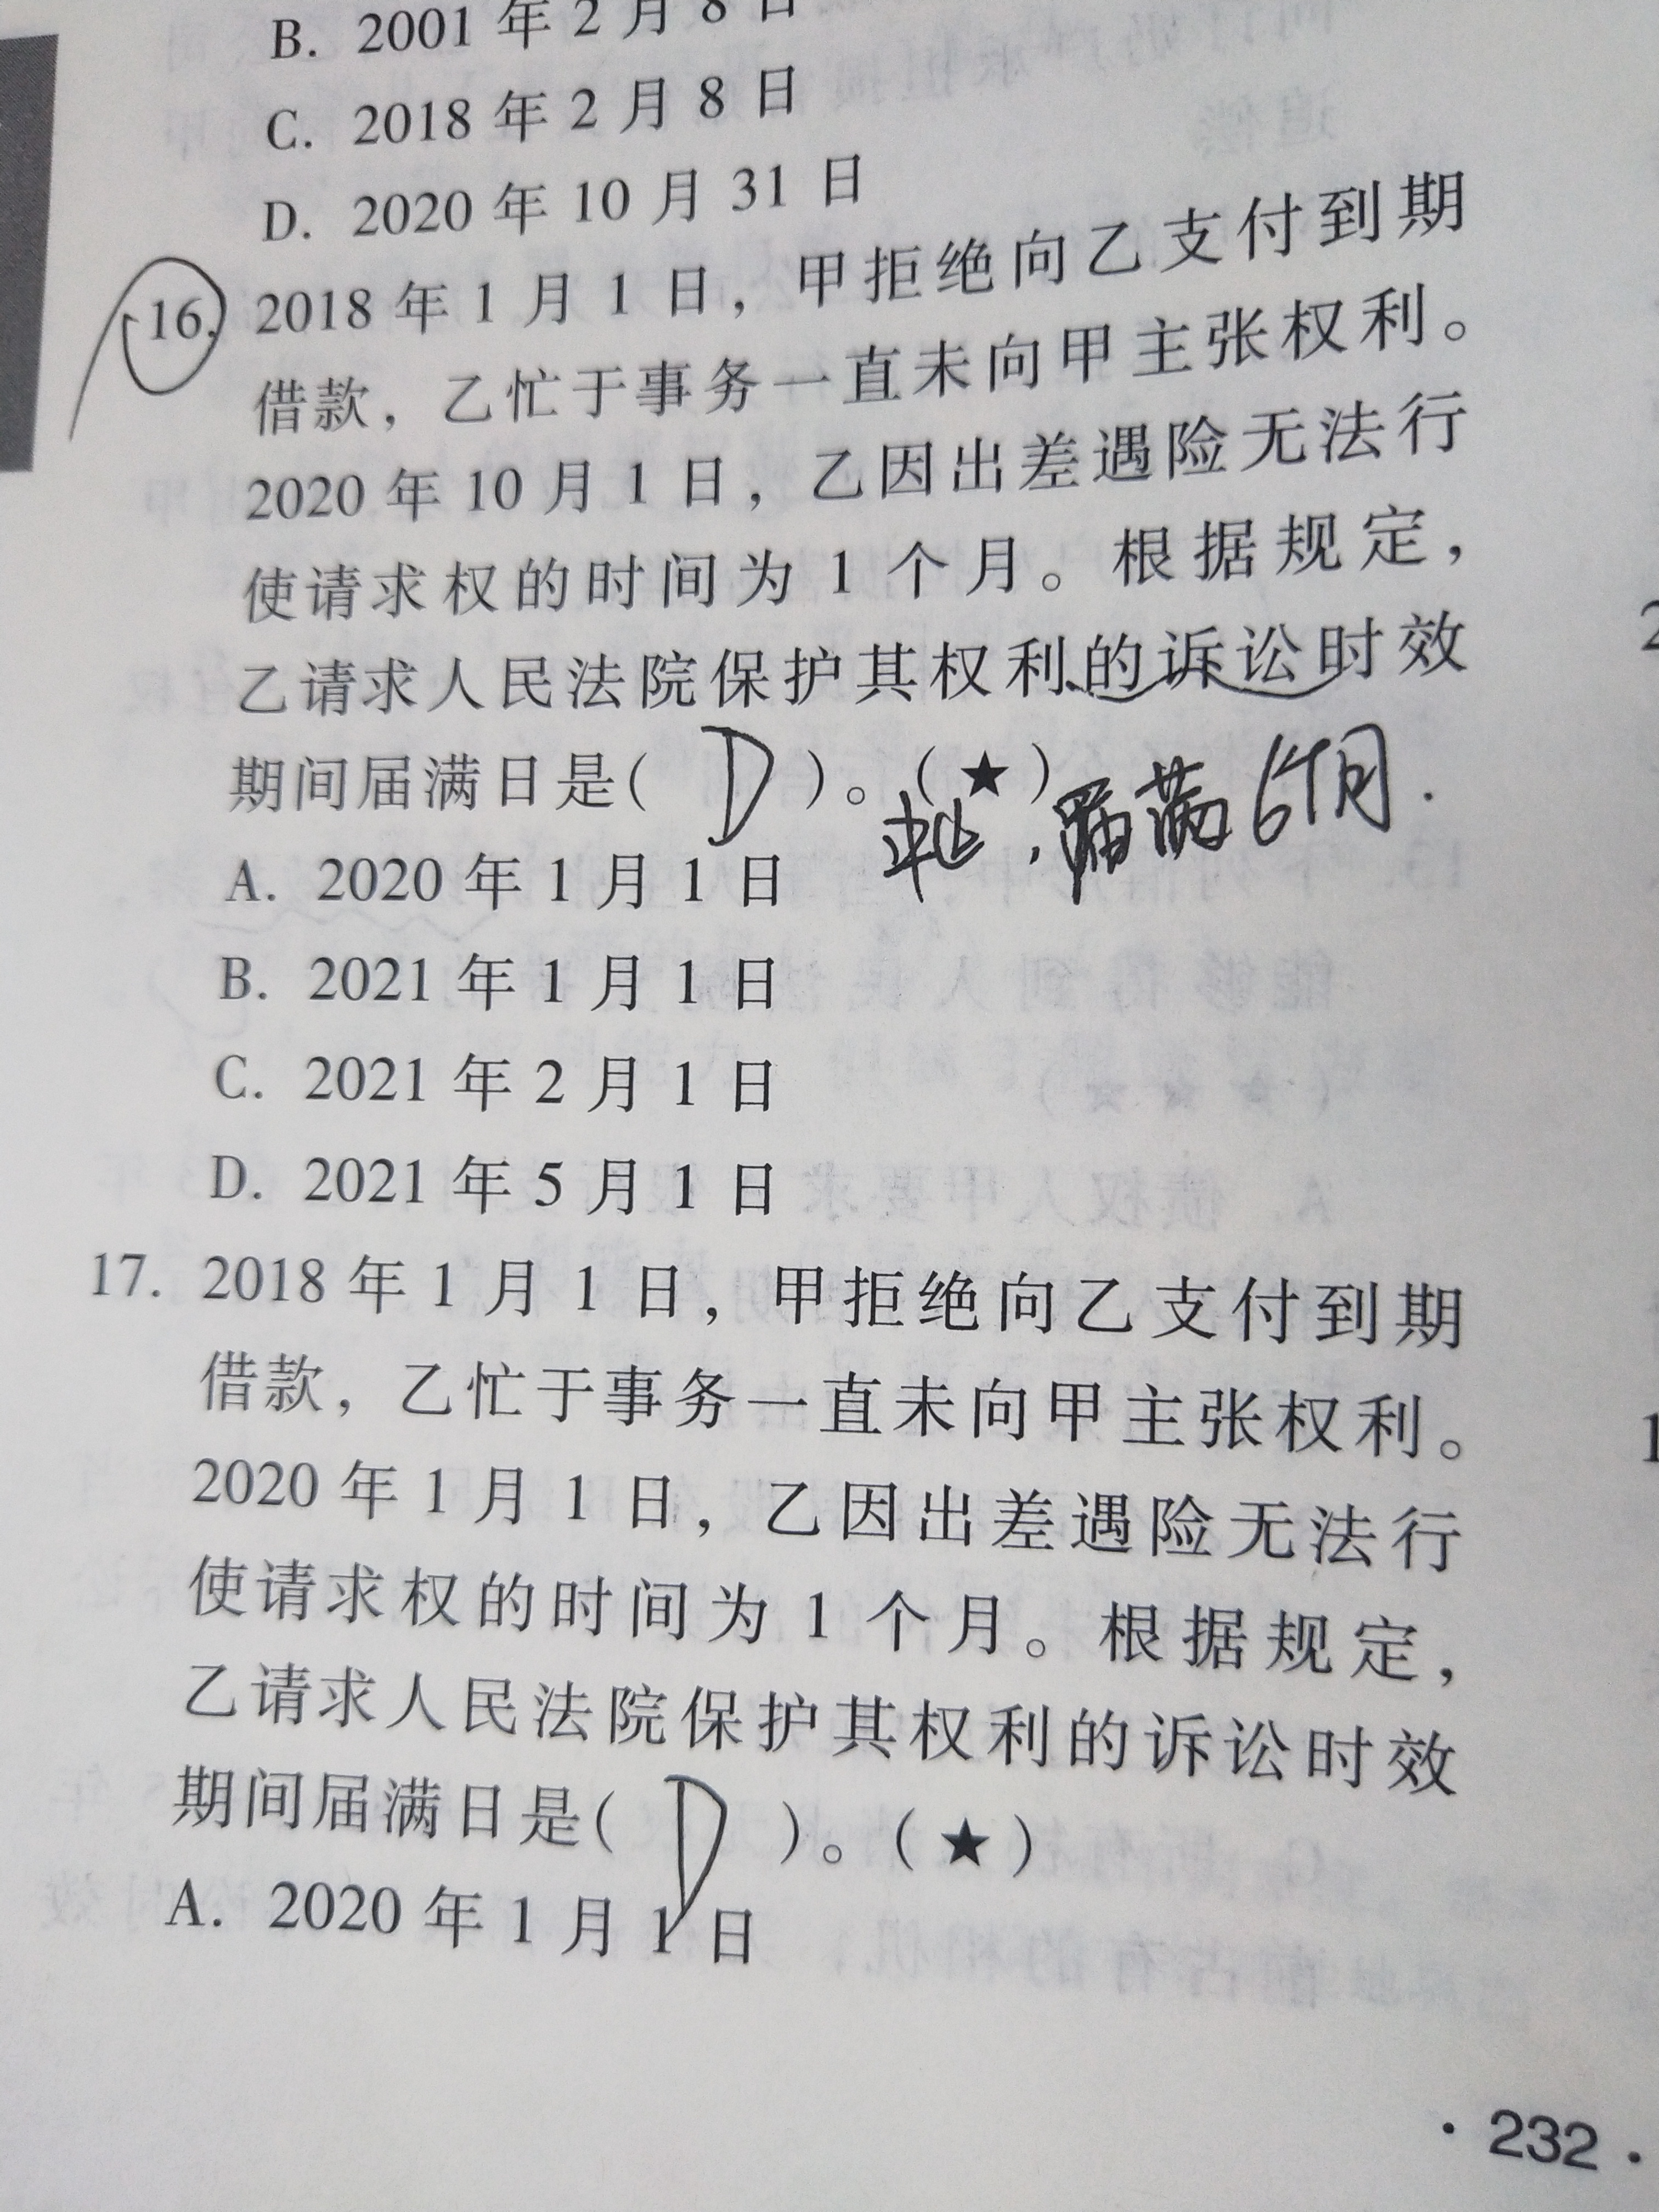 B. 2001 年 2 月 8 日
C. 2018 年 2 月 8 日
D. 2020 年 10 月 31 日
16. 2018 年 1 月 1 日，甲拒绝向乙支付到期
借款，乙忙于事务一直未向甲主张权利。
2020 年 10 月 1 日，乙因出差遇险无法行
使请求权的时间为 1 个月。根据规定，
乙请求人民法院保护其权利的诉讼时效
期间届满日是( D )。(★)
中止，届满6个月.
A. 2020 年 1 月 1 日
B. 2021 年 1 月 1 日
C. 2021 年 2 月 1 日
D. 2021 年 5 月 1 日
17. 2018 年 1 月 1 日，甲拒绝向乙支付到期
借款，乙忙于事务一直未向甲主张权利。
2020 年 1 月 1 日，乙因出差遇险无法行
使请求权的时间为 1 个月。根据规定，
乙请求人民法院保护其权利的诉讼时效
期间届满日是( D )。(★)
A. 2020 年 1 月 1 日
· 232 ·